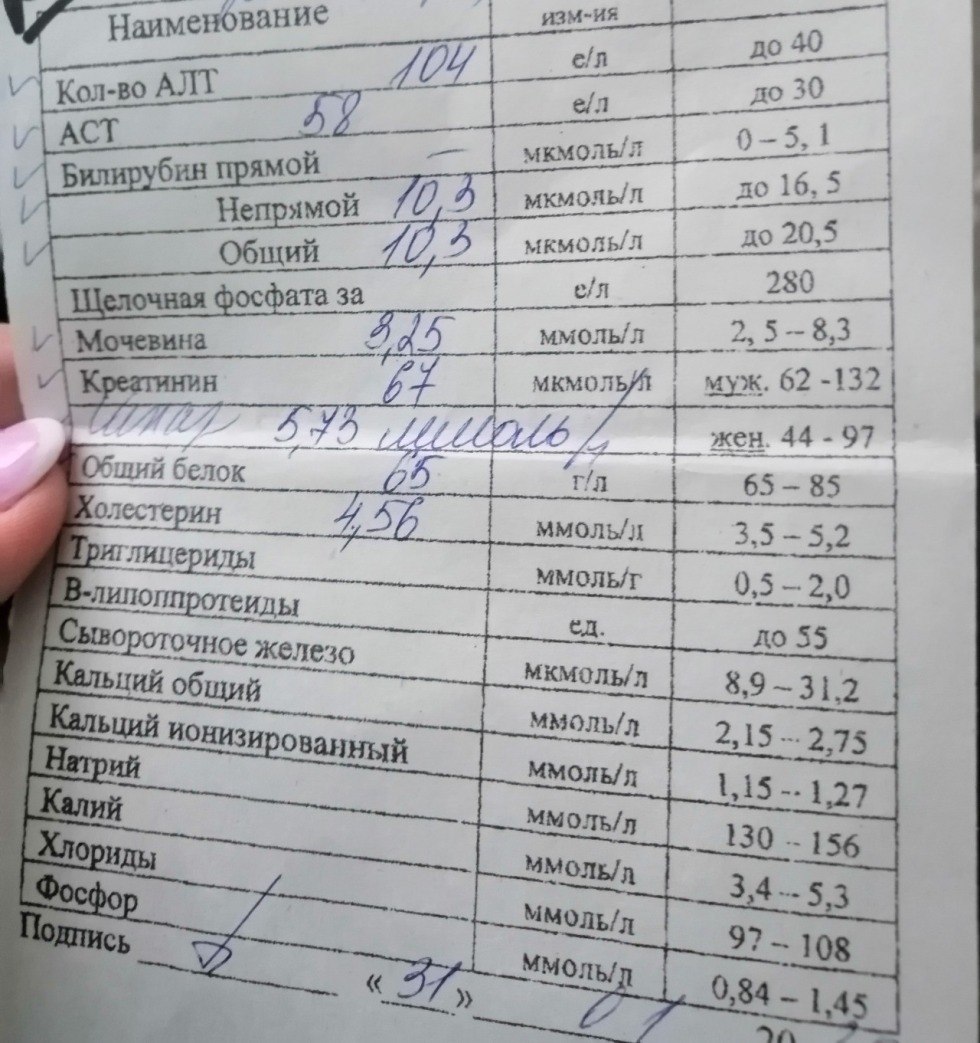 Наименование изм-ия
Кол-во АЛТ 104 е/л до 40
АСТ 58 е/л до 30
Билирубин прямой — мкмоль/л 0 – 5, 1
Непрямой 10,3 мкмоль/л до 16, 5
Общий 10,3 мкмоль/л до 20,5
Щелочная фосфата за е/л 280
Мочевина 3,25 ммоль/л 2, 5 – 8,3
Креатинин 67 мкмоль/л муж. 62 -132
5,73 ммоль/л жен. 44 - 97
Общий белок 65 г/л 65 – 85
Холестерин 4,56 ммоль/л 3,5 – 5,2
Триглицериды ммоль/г 0,5 – 2,0
В-липоппротеиды ед. до 55
Сывороточное железо мкмоль/л 8,9 – 31,2
Кальций общий ммоль/л 2,15 – 2,75
Кальций ионизированный ммоль/л 1,15 – 1,27
Натрий ммоль/л 130 – 156
Калий ммоль/л 3,4 – 5,3
Хлориды ммоль/л 97 – 108
Фосфор ммоль/л 0,84 – 1,45
Подпись « 31 » 01 20